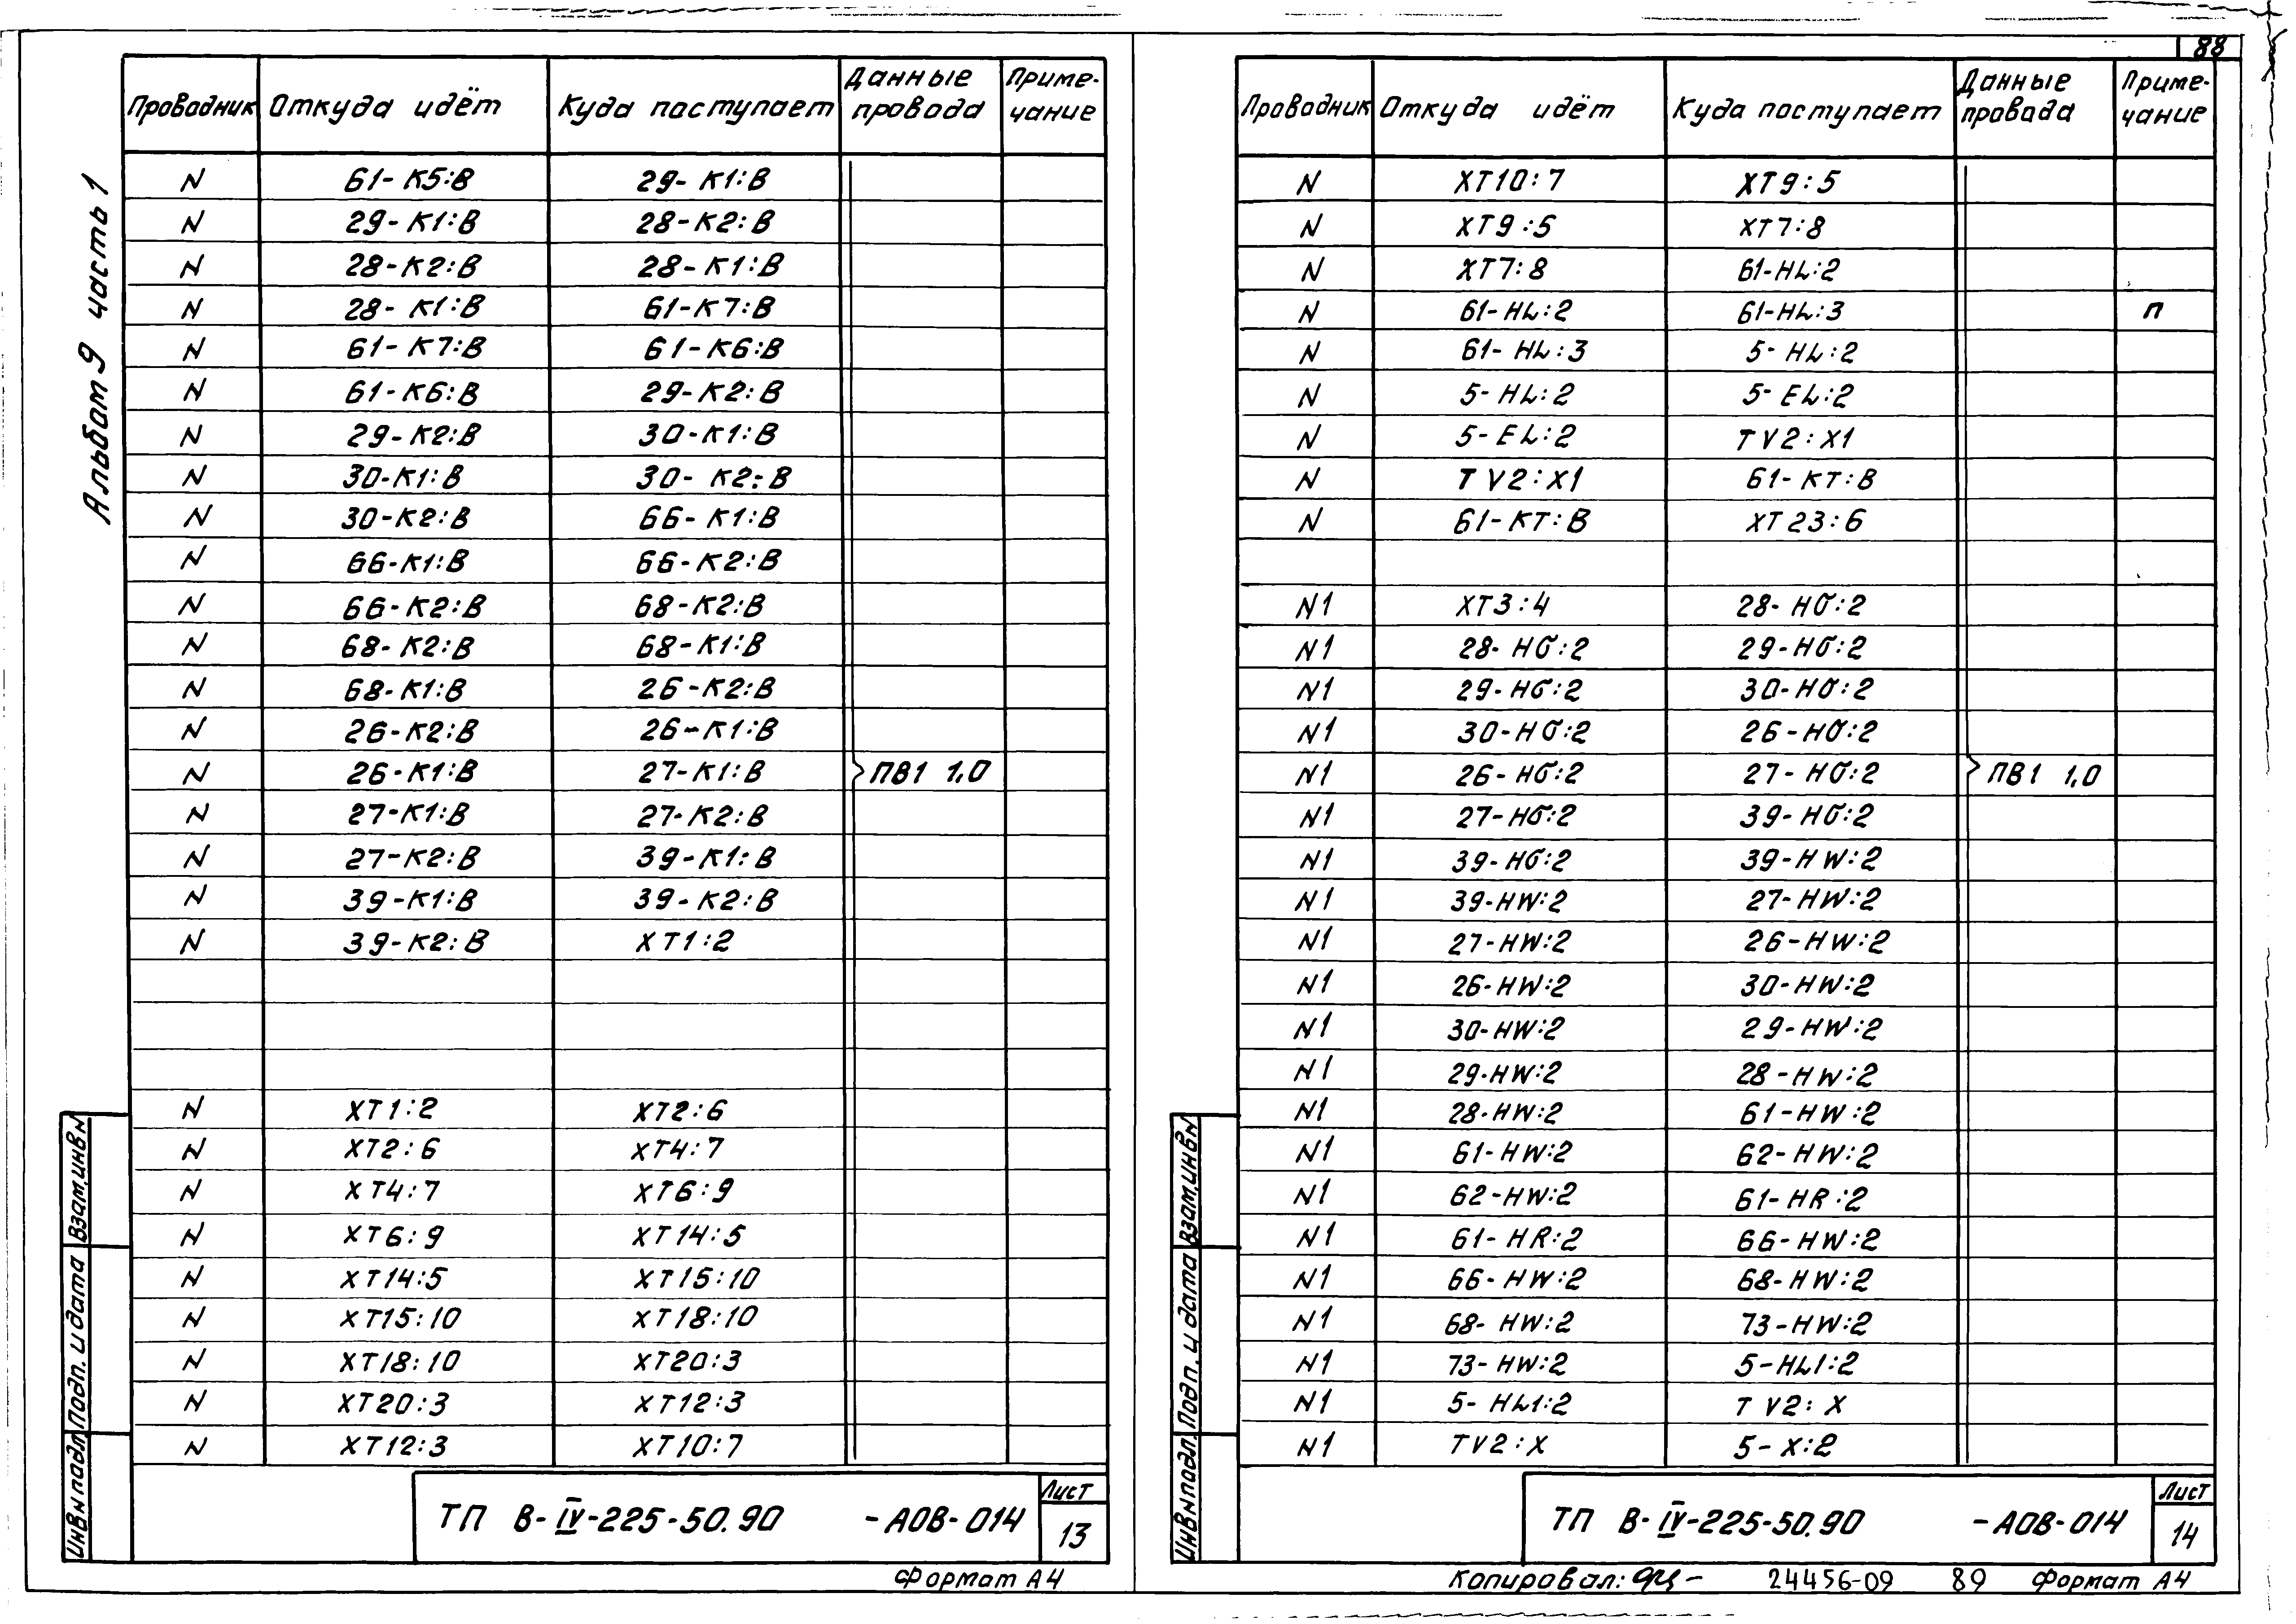 88
Альбом 9 часть 1
Проводник Откуда идёт Куда поступает Данные провода Приме-чание
N 61-К5:В 29-К1:В
N 29-К1:В 28-К2:В
N 28-К2:В 28-К1:В
N 28-К1:В 61-К7:В
N 61-К7:В 61-К6:В
N 61-К6:В 29-К2:В
N 29-К2:В 30-К1:В
N 30-К1:В 30-К2:В
N 30-К2:В 66-К1:В
N 66-К1:В 66-К2:В
N 66-К2:В 68-К2:В
N 68-К2:В 68-К1:В
N 68-К1:В 26-К2:В
N 26-К2:В 26-К1:В
N 26-К1:В 27-К1:В ПВ1 1,0
N 27-К1:В 27-К2:В
N 27-К2:В 39-К1:В
N 39-К1:В 39-К2:В
N 39-К2:В ХТ1:2
N ХТ1:2 ХТ2:6
N ХТ2:6 ХТ4:7
N ХТ4:7 ХТ6:9
N ХТ6:9 ХТ14:5
N ХТ14:5 ХТ15:10
N ХТ15:10 ХТ18:10
N ХТ18:10 ХТ20:3
N ХТ20:3 ХТ12:3
N ХТ12:3 ХТ10:7
Взам.инв.N
Подп. и дата
Инв.N подл.
ТП В-IV-225-50.90 -АОВ-014
Лист
13
Формат А4
Проводник Откуда идёт Куда поступает Данные провода Приме-чание
N ХТ10:7 ХТ9:5
N ХТ9:5 ХТ7:8
N ХТ7:8 61-HL:2
N 61-HL:2 61-HL:3 п
N 61-HL:3 5-HL:2
N 5-HL:2 5-EL:2
N 5-EL:2 TV2:X1
N TV2:X1 61-КТ:В
N 61-КТ:В ХТ23:6
N1 ХТ3:4 28-HG:2
N1 28-HG:2 29-HG:2
N1 29-HG:2 30-HG:2
N1 30-HG:2 26-HG:2
N1 26-HG:2 27-HG:2 ПВ1 1,0
N1 27-HG:2 39-HG:2
N1 39-HG:2 39-HW:2
N1 39-HW:2 27-HW:2
N1 27-HW:2 26-HW:2
N1 26-HW:2 30-HW:2
N1 30-HW:2 29-HW:2
N1 29-HW:2 28-HW:2
N1 28-HW:2 61-HW:2
N1 61-HW:2 62-HW:2
N1 62-HW:2 61-HR:2
N1 61-HR:2 66-HW:2
N1 66-HW:2 68-HW:2
N1 68-HW:2 73-HW:2
N1 73-HW:2 5-HL1:2
N1 5-HL1:2 TV2:X
N1 TV2:X 5-X:2
Взам.инв.N
Подп. и дата
Инв.N подл.
ТП В-IV-225-50.90 -АОВ-014
Лист
14
Копировал: 24456-09 89 Формат А4